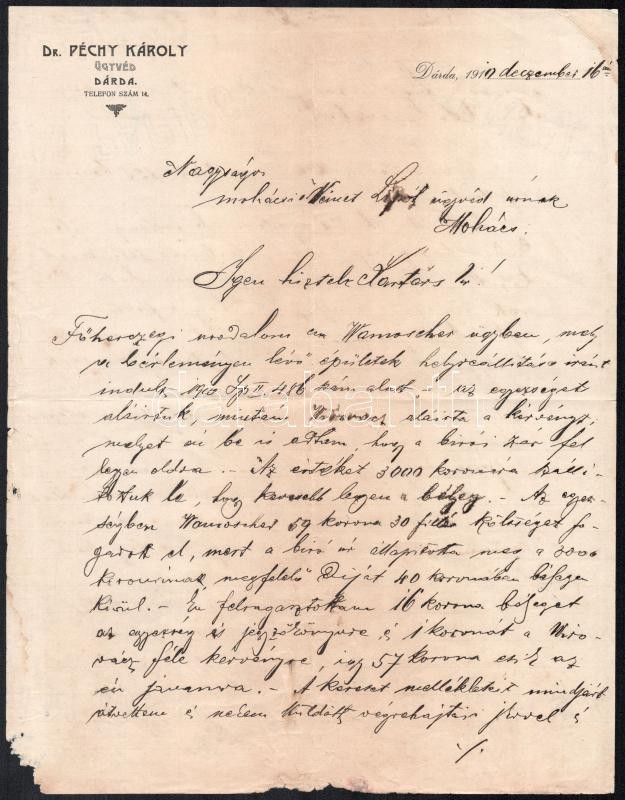 Dr. PÉCHY KÁROLY
ÜGYVÉD
DÁRDA.
TELEFON SZÁM 14.
Dárda, 1910 deczember 16
Nagyságos
mohácsi Német Lipót ügyvéd úrnak
Mohács.
Igen tisztelt Kartárs Úr!
Főherczegi uradalom Wamoscher ügyben, mely
a bérleményen lévő épületek helyreállítása iránt
indult 1910 Sp II 486 szám alatt – az egyezséget
aláírtuk, miután aláírta a kérvényt,
melyet én be is adtam, hogy a birói zár fel
legyen oldva. – Az értéket 3000 koronára szállí
tottuk le, hogy kevesebb legyen a bélyeg. – Az egyez-
ségben Wamoscher 59 korona 30 fillér költséget fo-
gadott el, mert a biró úr állapította meg a 3000
koronának megfelelő díját 40 koronában bélyegen
kívül. – Én felragasztottam 16 korona bélyeget
az egyezség és jegyzőkönyvre, és 1 koronát a Viro-
vácz féle kérvényre, így 57 korona esik az
én javamra. – A kereset mellékleteit mindjárt
átvettem és nekem küldött végrehajtási és
./.